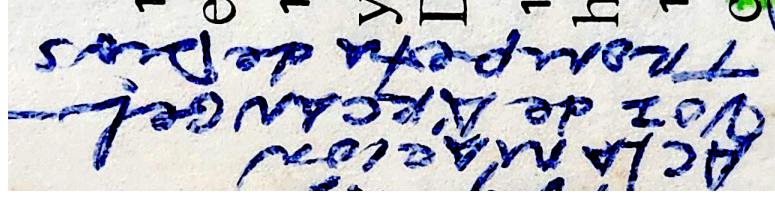 ACLAMACION
Voz de ARCANGeL
Trompeta de Dios